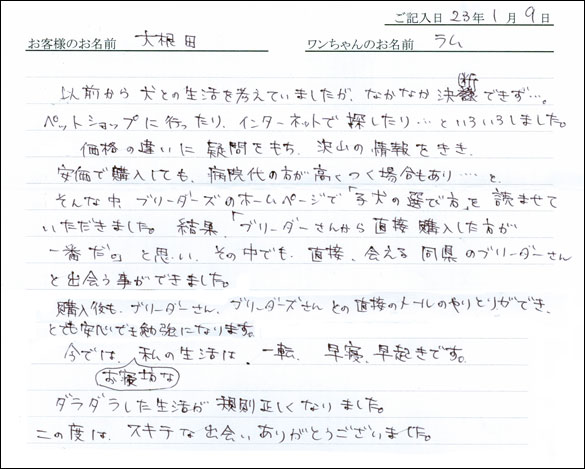 ご記入日 23年 1月 9日
お客様のお名前 大根田 ワンちゃんのお名前 ラム
以前から犬との生活を考えていましたが、なかなか決断できず…。
ペットショップに行ったり、インターネットで探したり…といろいろしました。
価格の違いに疑問をもち、沢山の情報をきき、
安価で購入しても、病院代の方が高くつく場合もあり……と、
そんな中ブリーダーズのホームページで「子犬の選び方」を読ませて
いただきました。結果、「ブリーダーさんから直接購入した方が
一番だ。」と思い、その中でも、直接、会える同県のブリーダーさん
と出会う事ができました。
購入後も、ブリーダーさん、ブリーダーズさんとの直接のメールのやりとりができ、
とても安心でも勉強になります。
今では、私の生活は、一転、早寝、早起きです。
お寝坊な
ダラダラした生活が規則正しくなりました。
この度は、ステキな出会いありがとうございました。